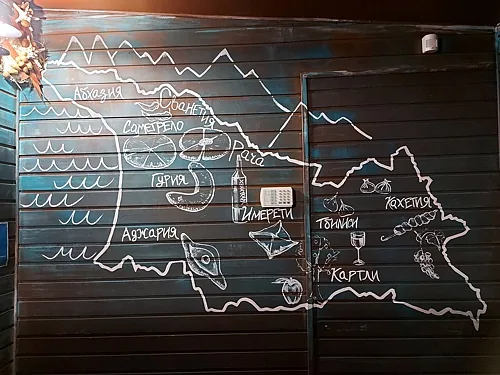 Абхазия
Сванетия
Самегрело
Рача
Гурия
Имерети
Кахетия
Тбилиси
Аджария
Картли